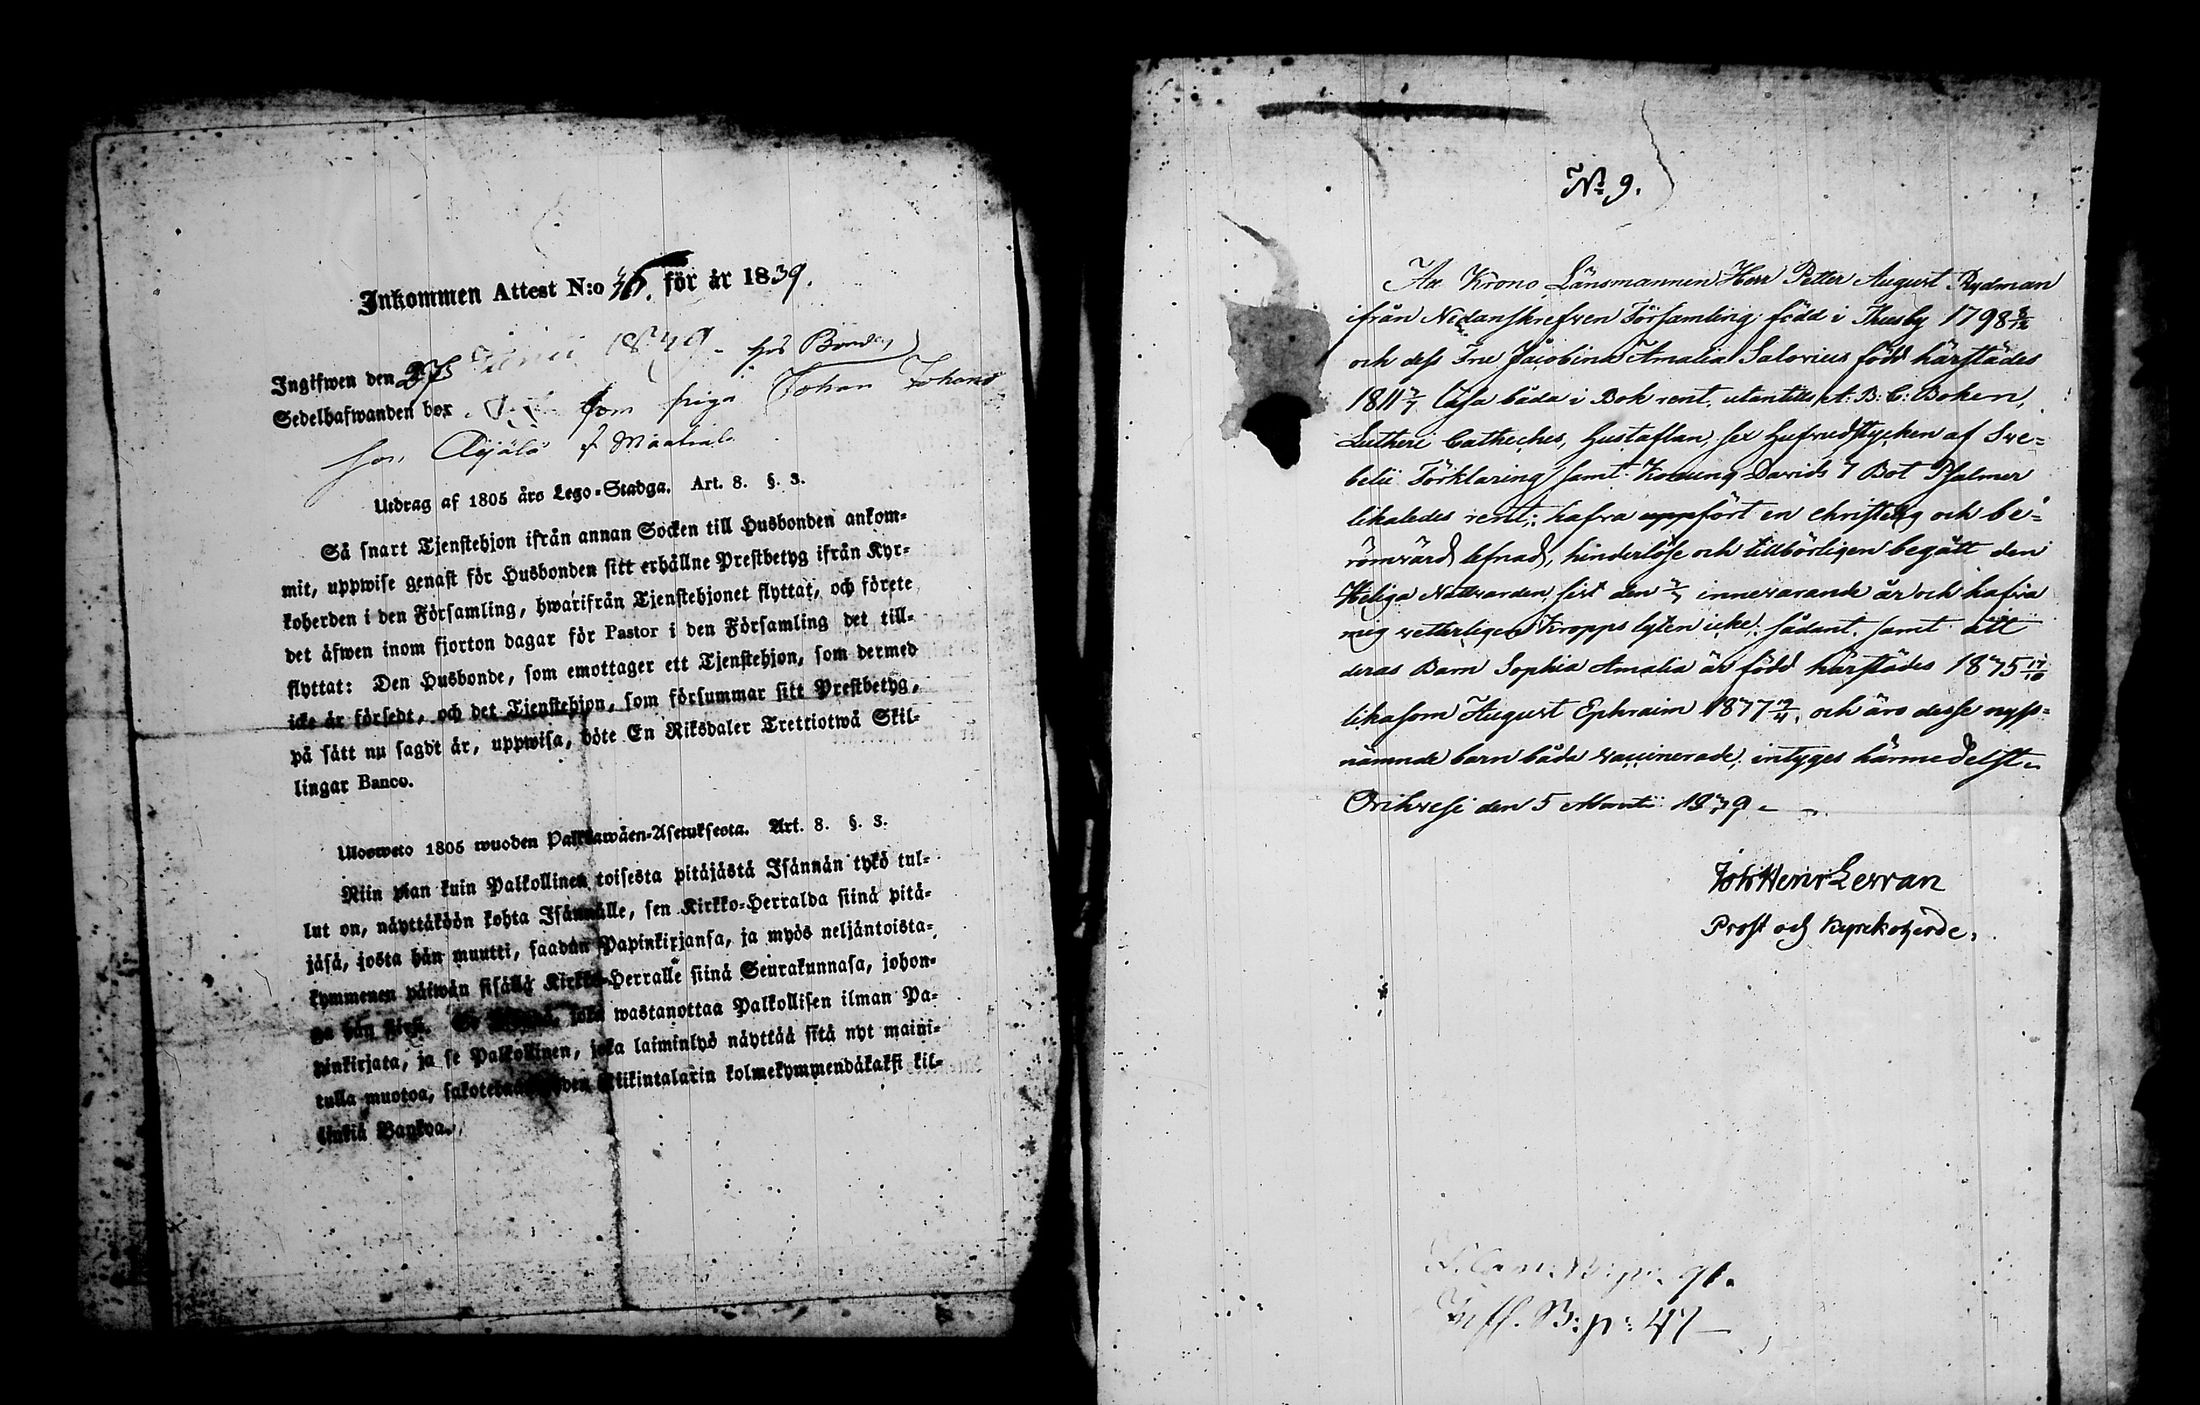 Inkommen Attest N:o 36. för år 1839.
Ingifwen den 27 Junii 1839. hos Bonden
Sedelhafwanden bor som piga Johan Johans
son Äijälä i
Utdrag af 1805 års Lego-Stadga. Art. 8. §. 3.
Så snart Tjenstehjon ifrån annan Socken till Husbonden ankom-
mit, uppwise genast för Husbonden sitt erhållne Prestbetyg ifrån Kyr-
koherden i den Församling, hwarifrån Tjenstehjonet flyttat, och förete
det äfwen inom fjorton dagar för Pastor i den Församling det till-
flyttat: Den Husbonde, som emottager ett Tjenstehjon, som dermed
icke är försedt, och det Tjenstehjon, som försummar sitt Prestbetyg,
på sätt nu sagdt är, uppwisa, böte En Riksdaler Trettiotwå Skil-
lingar Banco.
Ulosweto 1805 wuoden Palkkawäen-Asetuksesta. Art. 8. §. 3.
Niin pian kuin Palkollinen toisesta pitäjästä Isännän tykö tul-
lut on, näyttäköön kohta Isännälle, sen Kirkko-Herralda siinä pitä-
jäsä, josta hän muutti, saadun Papinkirjansa, ja myös neljäntoista-
kymmenen päiwän sisällä Kirkko-Herralle siinä Seurakunnasa, johon-
ga hän siirsi. Se Isändä, joka wastanottaa Palkollisen ilman Pa-
pinkirjata, ja se Palkollinen, joka laiminlyö näyttää sitä nyt maini-
tulla muotoa, sakotetaan yhden Riikintalarin kolmekymmendäkaksi kil-
linkiä Bankoa.
No 9.
Att Krono Länsmannen Herr Petter August Rydman
ifrån Nedanskrefven Församling född i Thusby 1798 8/12
och dess Fru Jacobina Amalia Salovius född härstädes
1811 5/7 läsa båda i Bok rent, utantill A: B: C: Boken,
Lutheri Catheches, Hustaflan, sex hufvudstycken af Sve-
belii Förklaring samt Konung Davids 7 Bot Psalmer
likaledes rent; hafva uppfört en christelig och be-
römvärd lefnad, hinderlöse och tillbörligen begått den
Heliga Nattvarden sist den innevarande år och hafva
mig vetterligen Kropps lyten icke, sådant samt att
deras Barn Sophia Amalia är född härstädes 1835 17/10
likasom August Ephraim 1837 19/4, och äro desse nyss-
nämnde barn båda vaccinerade; intyges härmedelst.
Orihvesi den 5 Martii 1839.
Joh Henr Levan
Prost och Kyrkoherde.
p: 91.
Inff. B: p: 47